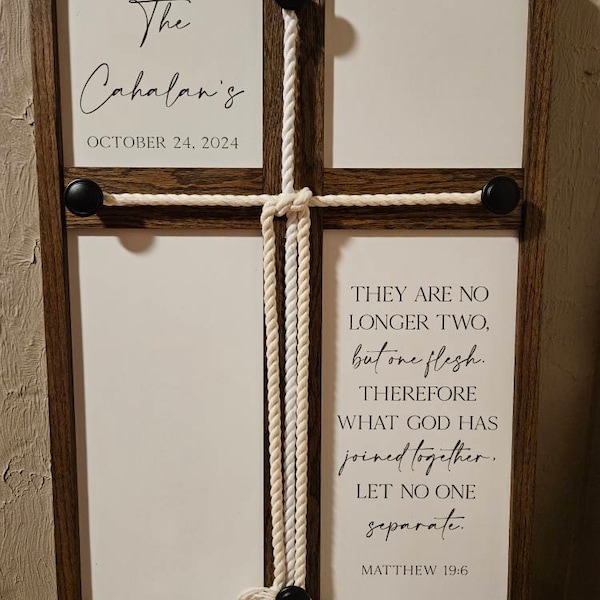 The
Cahalan's
OCTOBER 24, 2024
THEY ARE NO
LONGER TWO,
but one flesh.
THEREFORE
WHAT GOD HAS
joined together,
LET NO ONE
separate.
MATTHEW 19:6